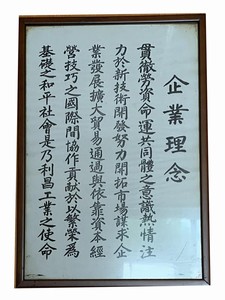 企業理念
貫徹勞資命運共同體之意識熱情注
力於新技術開發努力開拓市場謀求企
業發展擴大貿易通過與依靠資本經
營技巧之國際間協作貢献於以繁榮為
基礎之和平社會是乃利昌工業之使命